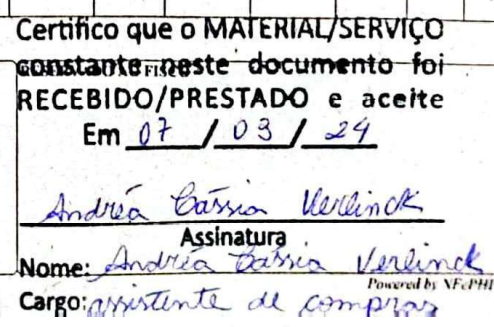 Certifico que o MATERIAL/SERVIÇO
constante neste documento foi
RECEBIDO/PRESTADO e aceite
Em 07 / 03 / 24
Andréa Cássia Verlinck
Assinatura
Nome: Andréa Cássia Verlinck
Powered by NFePHP
Cargo: assistente de compras